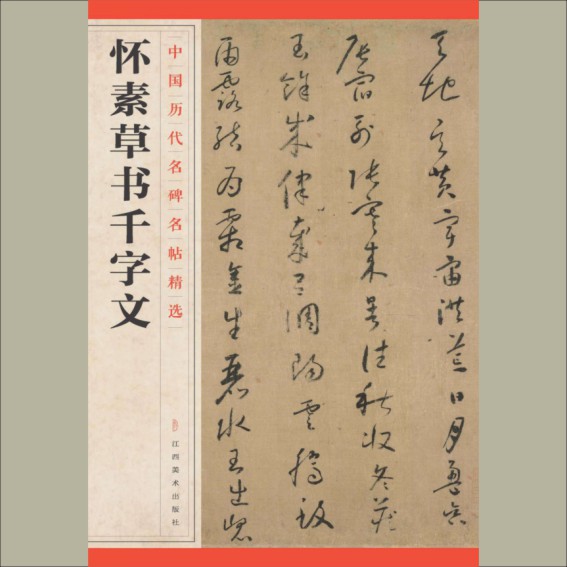 怀素草书千字文
中国历代名碑名帖精选
江西美术出版社
天地玄黄宇宙洪荒日月盈昃
辰宿列張寒来暑往秋收冬蔵
閏餘成律歲呂調陽雲騰致
雨露結為霜金生麗水玉出崑